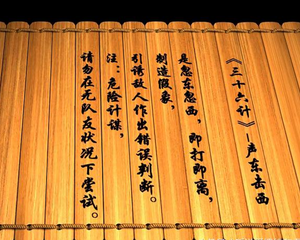 《三十六计》—声东击西
是忽东忽西，即打即离，
制造假象，
引诱敌人作出错误判断。
注：危险计谋，
请勿在无队友状况下尝试。